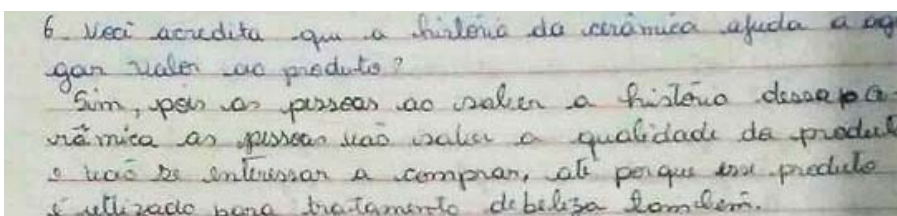 6. Você acredita que a história da cerâmica ajuda a ag
gar valor ao produto?
Sim, pois as pessoas ao saber a história dessa
râmica as pessoas vão saber a qualidade do produt
e vão se interessar a comprar, até porque esse produto
é utilizado para tratamento de beleza também.